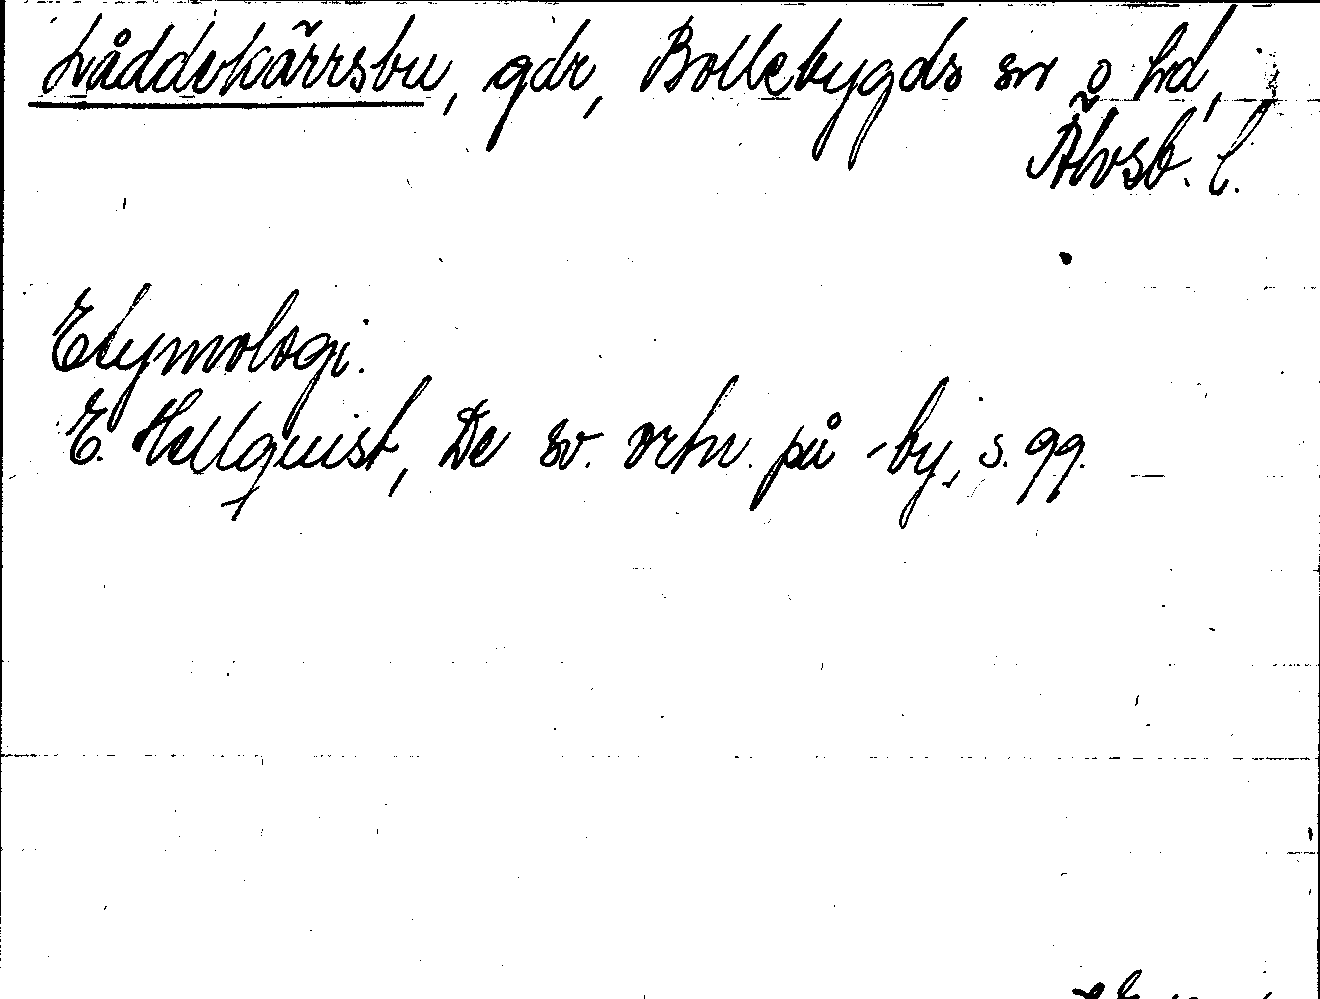 Låddekärrsbu, gdr, Bollebygds sn o hd,
Älvsb. l.
Etymologi.
E. Hellquist, De sv. ortn. på -by, s. 99.